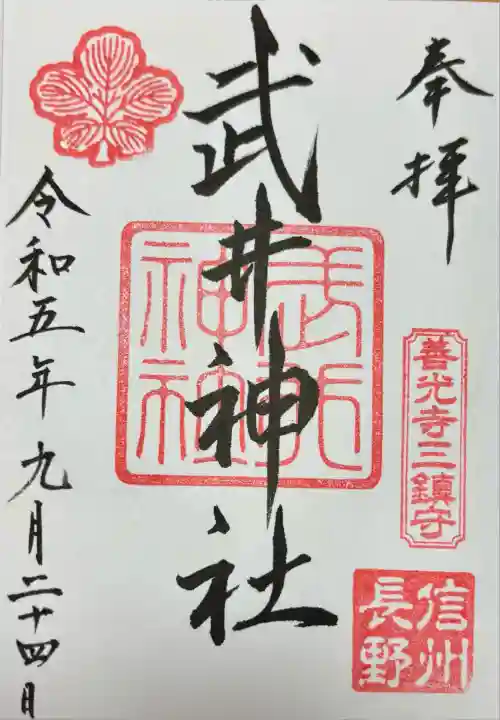 奉拝
善光寺三鎮守
信州
長野
武井神社
武井
神社
令和五年九月二十四日